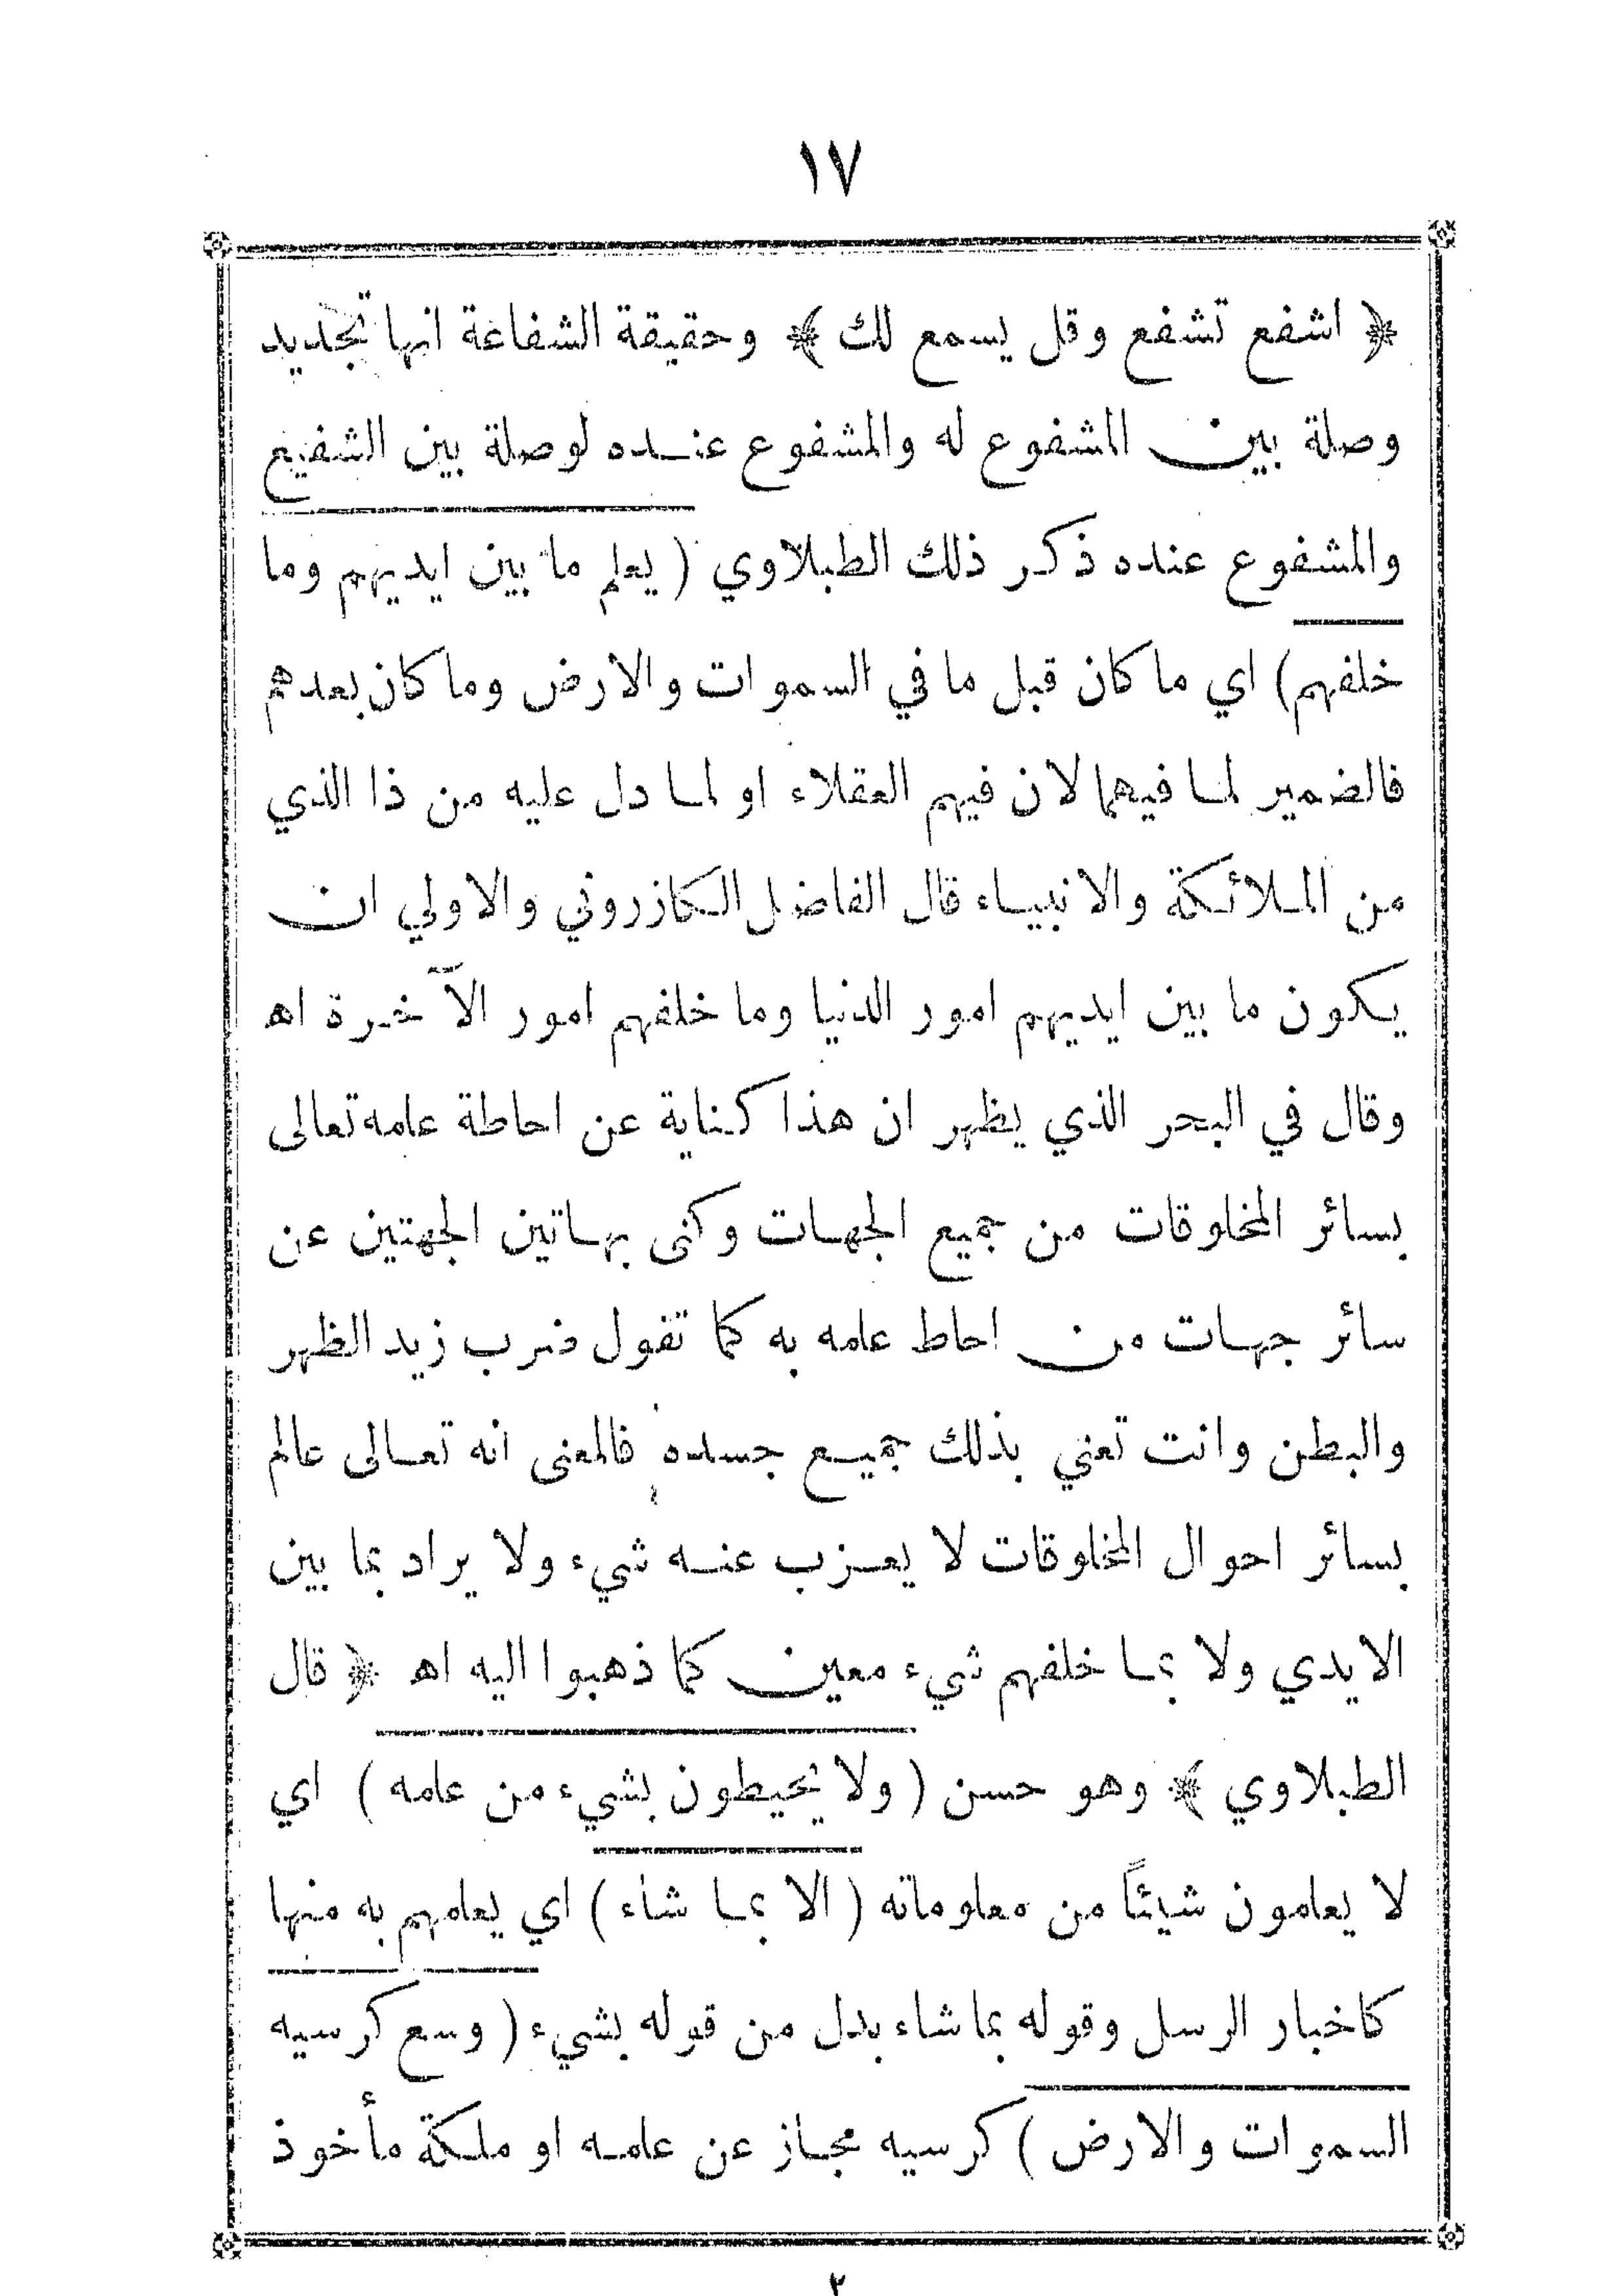 ١٧
﴿ اشفع تشفع وقل يسمع لك ﴾ وحقيقة الشفاعة انها تجديد
وصلة بين المشفوع له والمشفوع عنده لوصلة بين الشفيع
والمشفوع عنده ذكر ذلك الطبلاوي ( يعلم ما بين ايديهم وما
خلفهم ) اي ما كان قبل ما في السموات والارض وما كان بعدهم
فالضمير لما فيهما لان فيهم العقلاء او لما دل عليه من ذا الذي
من الملائكة والانبياء قال الفاضل الكازروني والاولي ان
يكون ما بين ايديهم امور الدنيا وما خلفهم امور الآخرة اه
وقال في البحر الذي يظهر ان هذا كناية عن احاطة علمه تعالى
بسائر المخلوقات من جميع الجهات وكنى بهاتين الجهتين عن
سائر جهات من احاط علمه به كما تقول ضرب زيد الظهر
والبطن وانت تعني بذلك جميع جسده فالمعنى انه تعالى عالم
بسائر احوال المخلوقات لا يعزب عنه شيء ولا يراد بما بين
الايدي ولا بما خلفهم شيء معين كما ذهبوا اليه اه ﴿ قال
الطبلاوي ﴾ وهو حسن ( ولا يحيطون بشيء من علمه ) اي
لا يعلمون شيئاً من معلوماته ( الا بما شاء ) اي يعلمهم به منها
كاخبار الرسل وقوله بما شاء بدل من قوله بشيء ( وسع كرسيه
السموات والارض ) كرسيه مجاز عن علمه او ملكة مأخوذ
٢